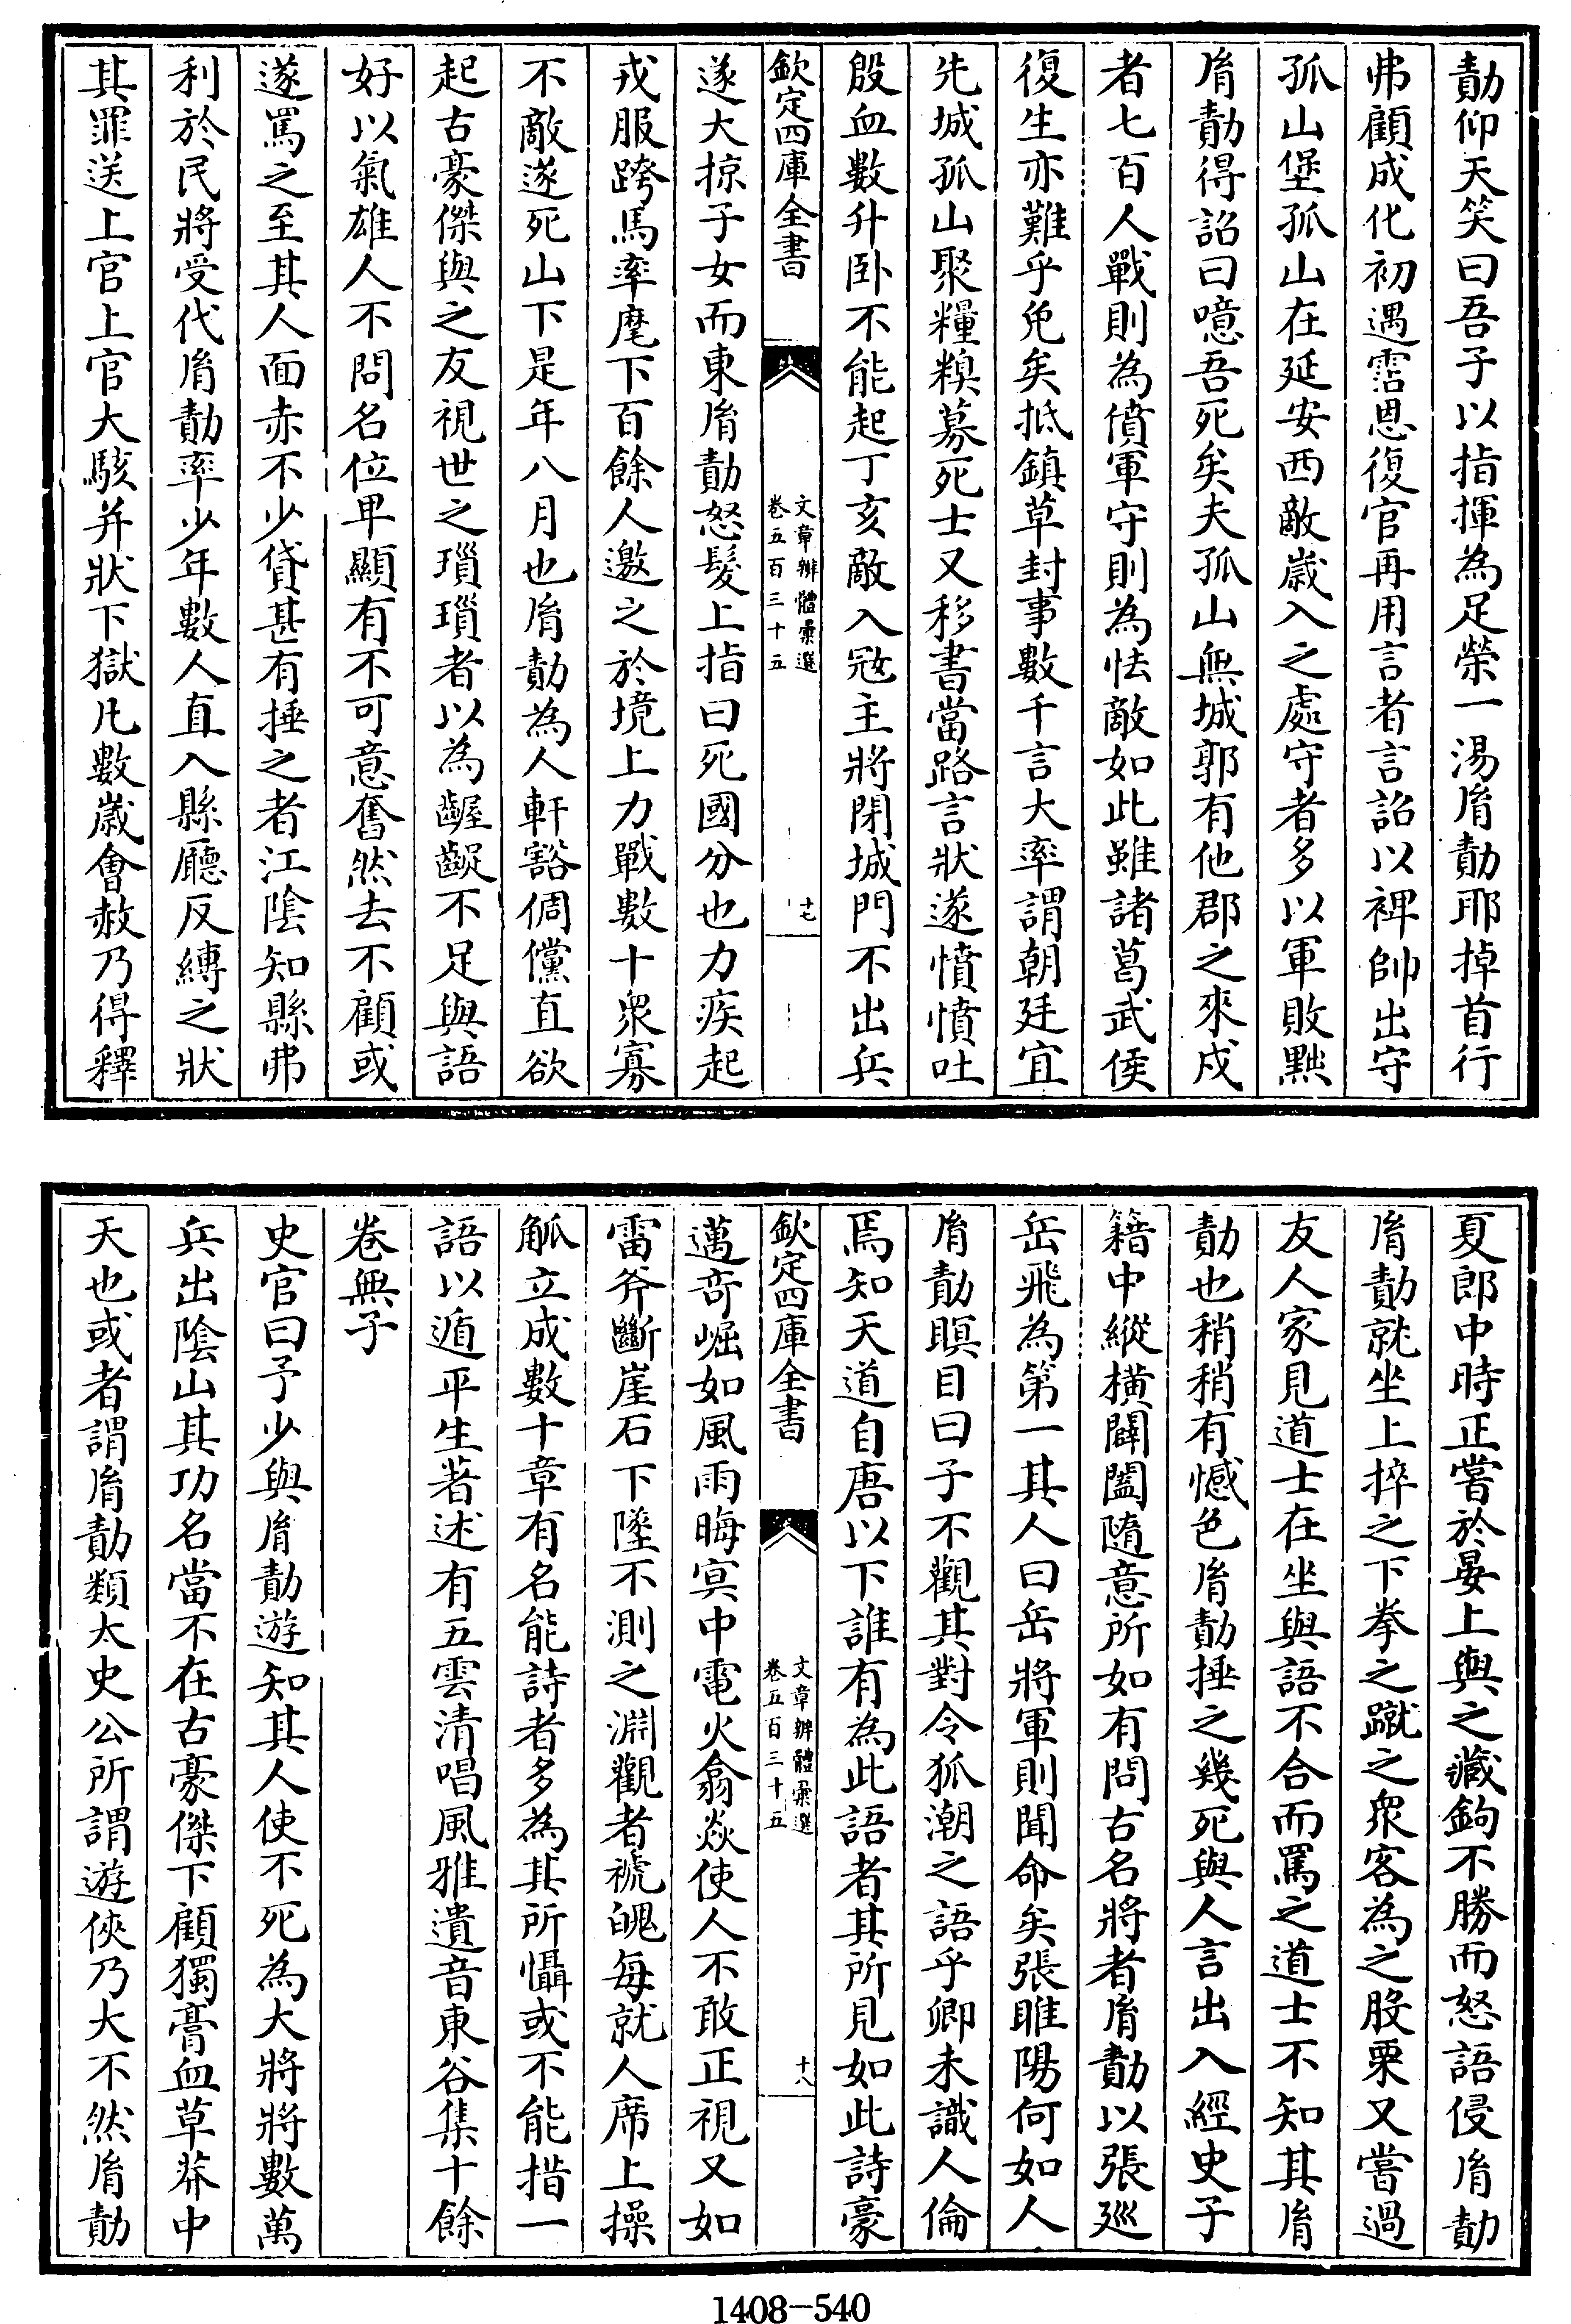 勣仰天笑曰吾子以指揮為足榮一湯㣧勣耶掉首行
弗顧成化初遇霑恩復官再用言者言詔以裨帥出守
孤山堡孤山在延安西敵歲入之處守者多以軍敗黜
㣧勣得詔曰噫吾死矣夫孤山無城郭有他郡之來戍
者七百人戰則為僨軍守則為怯敵如此雖諸葛武侯
復生亦難乎免矣抵鎮草封事數千言大率謂朝廷宜
先城孤山聚糧糗募死士又移書當路言狀遂憤憤吐
殷血數升卧不能起丁亥敵入冦主將閉城門不出兵
欽定四庫全書
文章辨體彙選
卷五百三十五
十七
遂大掠子女而東㣧勣怒髮上指曰死國分也力疾起
戎服跨馬率麾下百餘人邀之於境上力戰數十衆寡
不敵遂死山下是年八月也㣧勣為人軒豁倜儻直欲
起古豪傑與之友視世之瑣瑣者以為齷齪不足與語
好以氣雄人不問名位卑顯有不可意奮然去不顧或
遂罵之至其人面赤不少貸甚有捶之者江陰知縣弗
利於民將受代㣧勣率少年數人直入縣廳反縛之狀
其罪送上官上官大駭并狀下獄凡數歲會赦乃得釋
夏郎中時正嘗於宴上與之藏鉤不勝而怒語侵㣧勣
㣧勣就坐上捽之下拳之蹴之衆客為之股栗又嘗過
友人家見道士在坐與語不合而罵之道士不知其㣧
勣也稍稍有憾色㣧勣捶之幾死與人言出入經史子
籍中縱橫闢闔隨意所如有問古名將者㣧勣以張廵
岳飛為第一其人曰岳將軍則聞命矣張睢陽何如人
㣧勣瞑目曰子不觀其對令狐潮之語乎卿未識人倫
焉知天道自唐以下誰有為此語者其所見如此詩豪
欽定四庫全書
文章辨體彙選
卷五百三十五
十八
邁竒崛如風雨晦㝠中電火翕焱使人不敢正視又如
雷斧斷崖石下墜不測之淵觀者褫魄每就人席上操
觚立成數十章有名能詩者多為其所懾或不能措一
語以遁平生著述有五雲清唱風雅遺音東谷集十餘
卷無子
史官曰予少與㣧勣遊知其人使不死為大將將數萬
兵出陰山其功名當不在古豪傑下顧獨膏血草莽中
天也或者謂㣧勣類太史公所謂遊俠乃大不然㣧勣
1408-540